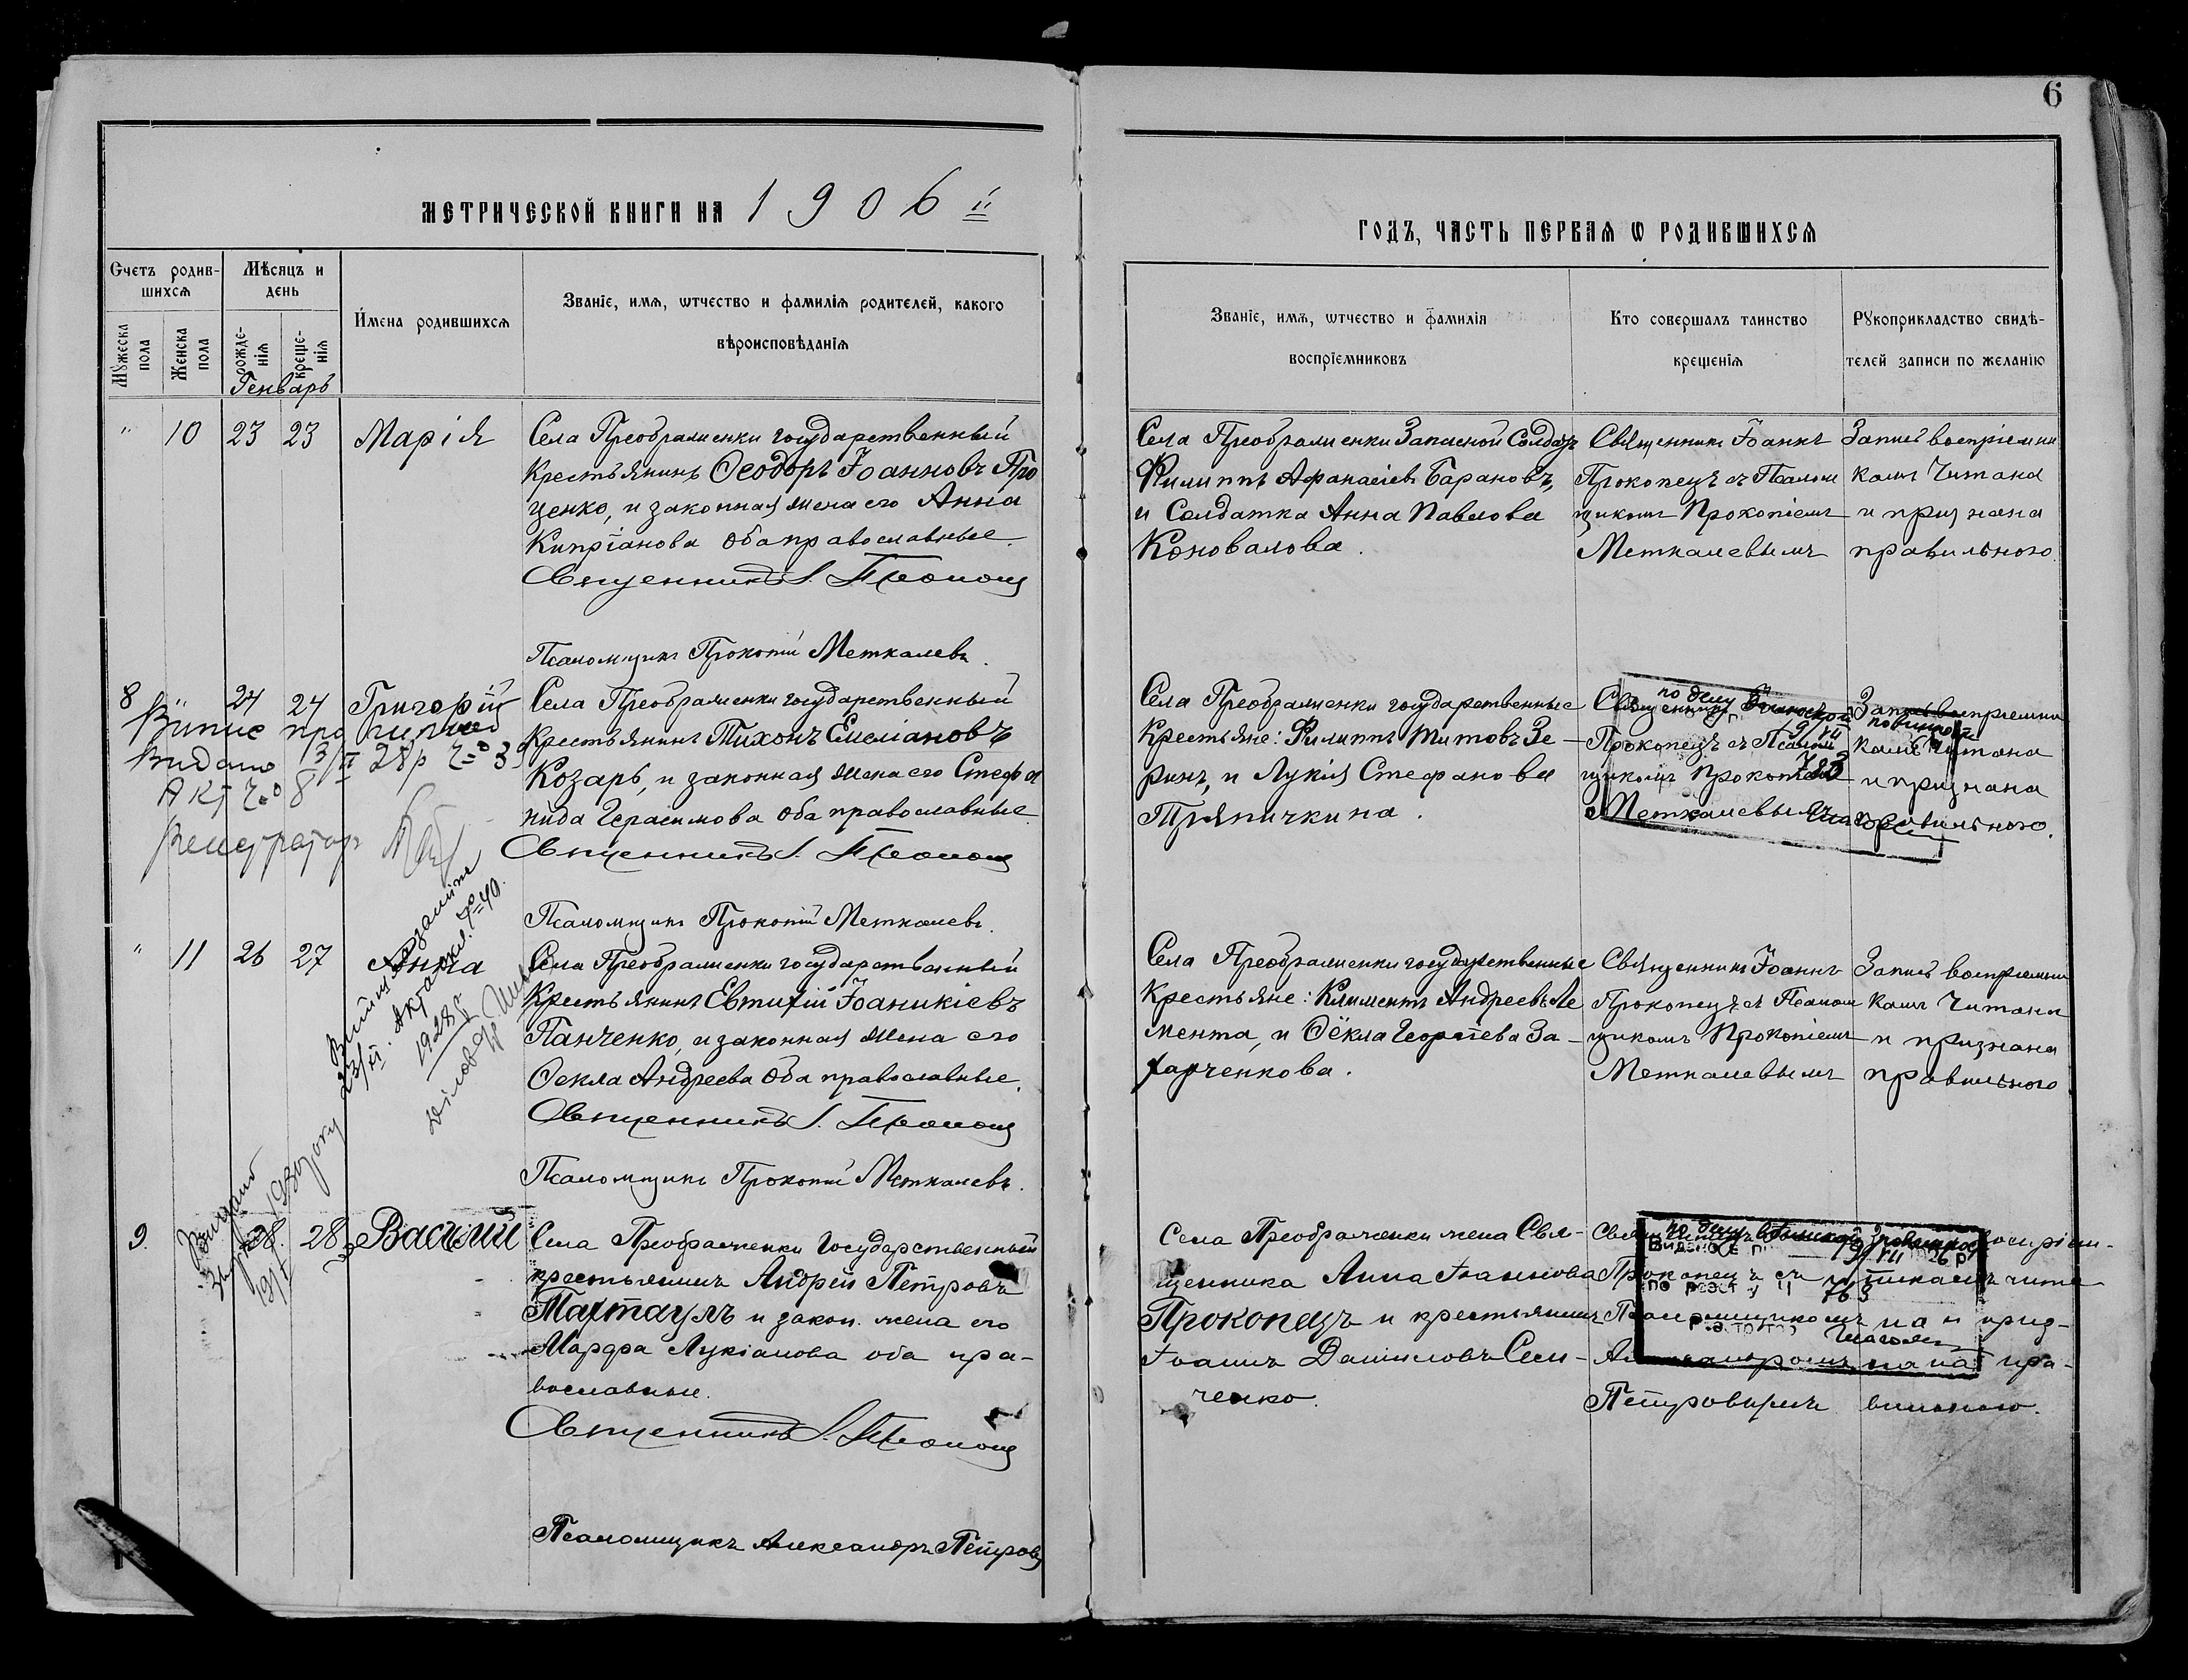 6
МЕТРИЧЕСКОЙ КНИГИ НА 1906й
ГОДЪ, ЧАСТЬ ПЕРВАЯ Ѡ РОДИВШИХСЯ
Счетъ родив-
шихся
Мѣсяцъ и
день
Имена родившихся
Званіе, имя, ѿчество и фамилія родителей, какого
вѣроисповѣданія
Мужеска
пола
Женска
пола
рожде-
нія
креще-
нія
Генварь
Званіе, имя, ѿчество и фамилія
воспріемниковъ
Кто совершалъ таинство
крещенія
Рукоприкладство свидѣ-
телей записи по желанію
" 10 23 23 Марія
Села Преображенки государственный
Крестьянинъ Ѳеодоръ Іоанновъ Про
ценко, и законная жена его Анна
Кипріанова оба православные.
Священникъ І. Прокопец
Псаломщикъ Прокопій Меткалевъ.
Села Преображенки Запасной Солдатъ
Филиппъ Афанасіевъ Барановъ,
и Солдатка Анна Павлова
Коновалова.
Священникъ Іоаннъ
Прокопецъ съ Псалом
щикомъ Прокопіемъ
Меткалевымъ
Запись воспріемни
камъ Читана
и признана
правильного.
8 " 24 24 Григорій
Випис про
Видано 3/II 28р № 39
Акт № 8
Села Преображенки государственный
Крестьянинъ Тихонъ Емеліановъ
Козарь, и законная жена его Стефа
нида Герасимова оба православные.
Священникъ І. Прокопец
Псаломщикъ Прокопій Меткалевъ.
Села Преображенки государственные
Крестьяне: Филиппъ Титовъ Зе-
ринъ, и Лукія Стефанова
Тряпичкина.
Священникъ
Прокопецъ съ Псалом
щикомъ Прокопіемъ
Меткалевымъ
Запись воспріемни
камъ Читана
и признана
правильного.
по делу
19/VII
" 11 26 27 Анна
23/VI. Акт № 40.
1928 р.
Села Преображенки государственный
Крестьянинъ Евтихій Іоаникіевъ
Панченко, и законная жена его
Ѳекла Андреева оба православные.
Священникъ І. Прокопец
Псаломщикъ Прокопій Меткалевъ.
Села Преображенки государственные
Крестьяне: Климентъ Андреевъ Ле
мента, и Ѳёкла Георгіева За-
харченкова.
Священникъ Іоаннъ
Прокопецъ съ Псалом
щикомъ Прокопіемъ
Меткалевымъ
Запись воспріемни
камъ Читана
и признана
правильного
9. 28. 28 Василій
Села Преображенки Государственный
крестьянинъ Андрей Петровъ
Тахтаулъ и закон. жена его
Марфа Лукіанова оба пра-
вославные.
Священникъ І. Прокопец
Псаломщикъ Александръ Петровъ
Села Преображенки жена Свя-
щенника Анна Іоаннова
Прокопецъ и крестьянинъ
Іоаннъ Даниловъ Сем-
ченко.
Прокопецъ съ
Псаломщикомъ
Александромъ
Петровымъ
воспріем-
никамъ чита-
на и приз-
нана пра-
вильною.
по делу
19/VII 26 р
763